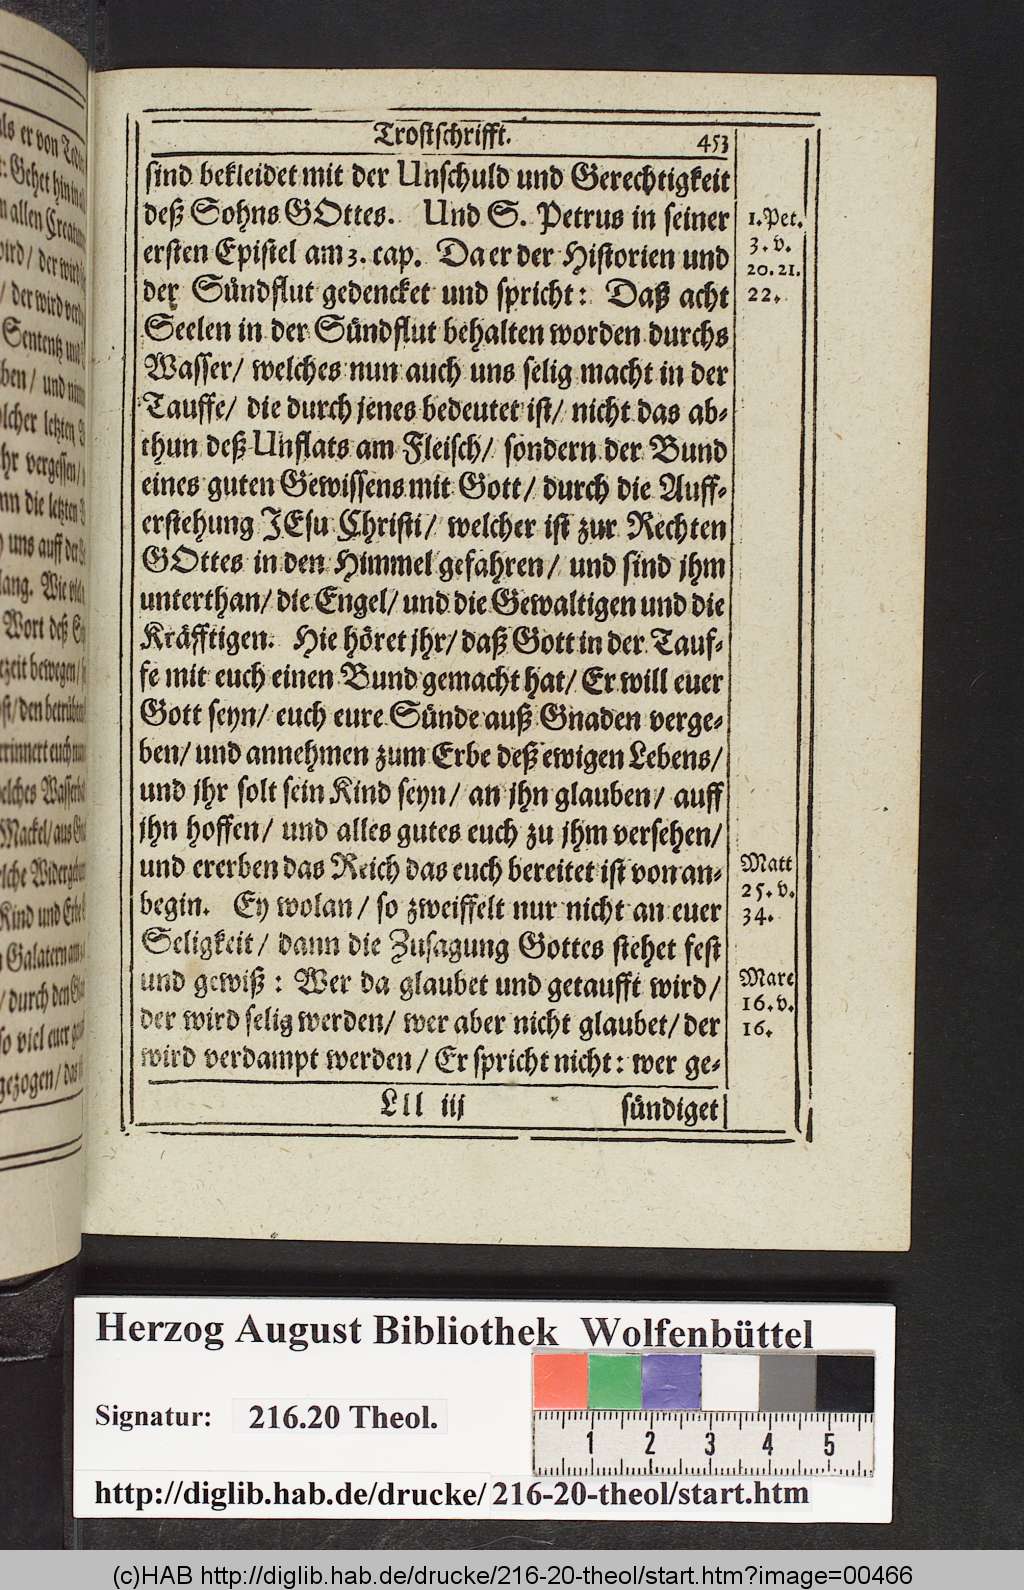 Trostschrifft. 453
sind bekleidet mit der Unschuld und Gerechtigkeit
deß Sohns GOttes. Und S. Petrus in seiner
ersten Epistel am 3. cap. Da er der Historien und
der Sündflut gedencket und spricht: Daß acht
Seelen in der Sündflut behalten worden durchs
Wasser/ welches nun auch uns selig macht in der
Tauffe/ die durch jenes bedeutet ist/ nicht das ab-
thun deß Unflats am Fleisch/ sondern der Bund
eines guten Gewissens mit Gott/ durch die Auff-
erstehung JEsu Christi/ welcher ist zur Rechten
GOttes in den Himmel gefahren/ und sind jhm
unterthan/ die Engel/ und die Gewaltigen und die
Kräfftigen. Hie höret jhr/ daß Gott in der Tauf-
fe mit euch einen Bund gemacht hat/ Er will euer
Gott seyn/ euch eure Sünde auß Gnaden verge-
ben/ und annehmen zum Erbe deß ewigen Lebens/
und jhr solt sein Kind seyn/ an jhn glauben/ auff
jhn hoffen/ und alles gutes euch zu jhm versehen/
und ererben das Reich das euch bereitet ist von an-
begin. Ey wolan/ so zweiffelt nur nicht an euer
Seligkeit/ dann die Zusagung Gottes stehet fest
und gewiß: Wer da glaubet und getaufft wird/
der wird selig werden/ wer aber nicht glaubet/ der
wird verdampt werden/ Er spricht nicht: wer ge-
Lll iij sündiget
1. Pet.
3. v.
20. 21.
22.
Matt
25. v.
34.
Marc
16. v.
16.
als er von
: Gehet hin in
allen
wird/ der wird
/ der wird
Sententz
ben/ und
solcher letzten
vergessen/
die letzten
uns auff der
lang. Wie
Wort deß
bewegen/
/ den
erinnert euch
welches
Mackel/ aus
Kind und
Galatern am
/ durch den
so viel euer
gezogen/ das
Herzog August Bibliothek Wolfenbüttel
Signatur: 216.20 Theol.
1 2 3 4 5
http://diglib.hab.de/drucke/216-20-theol/start.htm
(c)HAB http://diglib.hab.de/drucke/216-20-theol/start.htm?image=00466